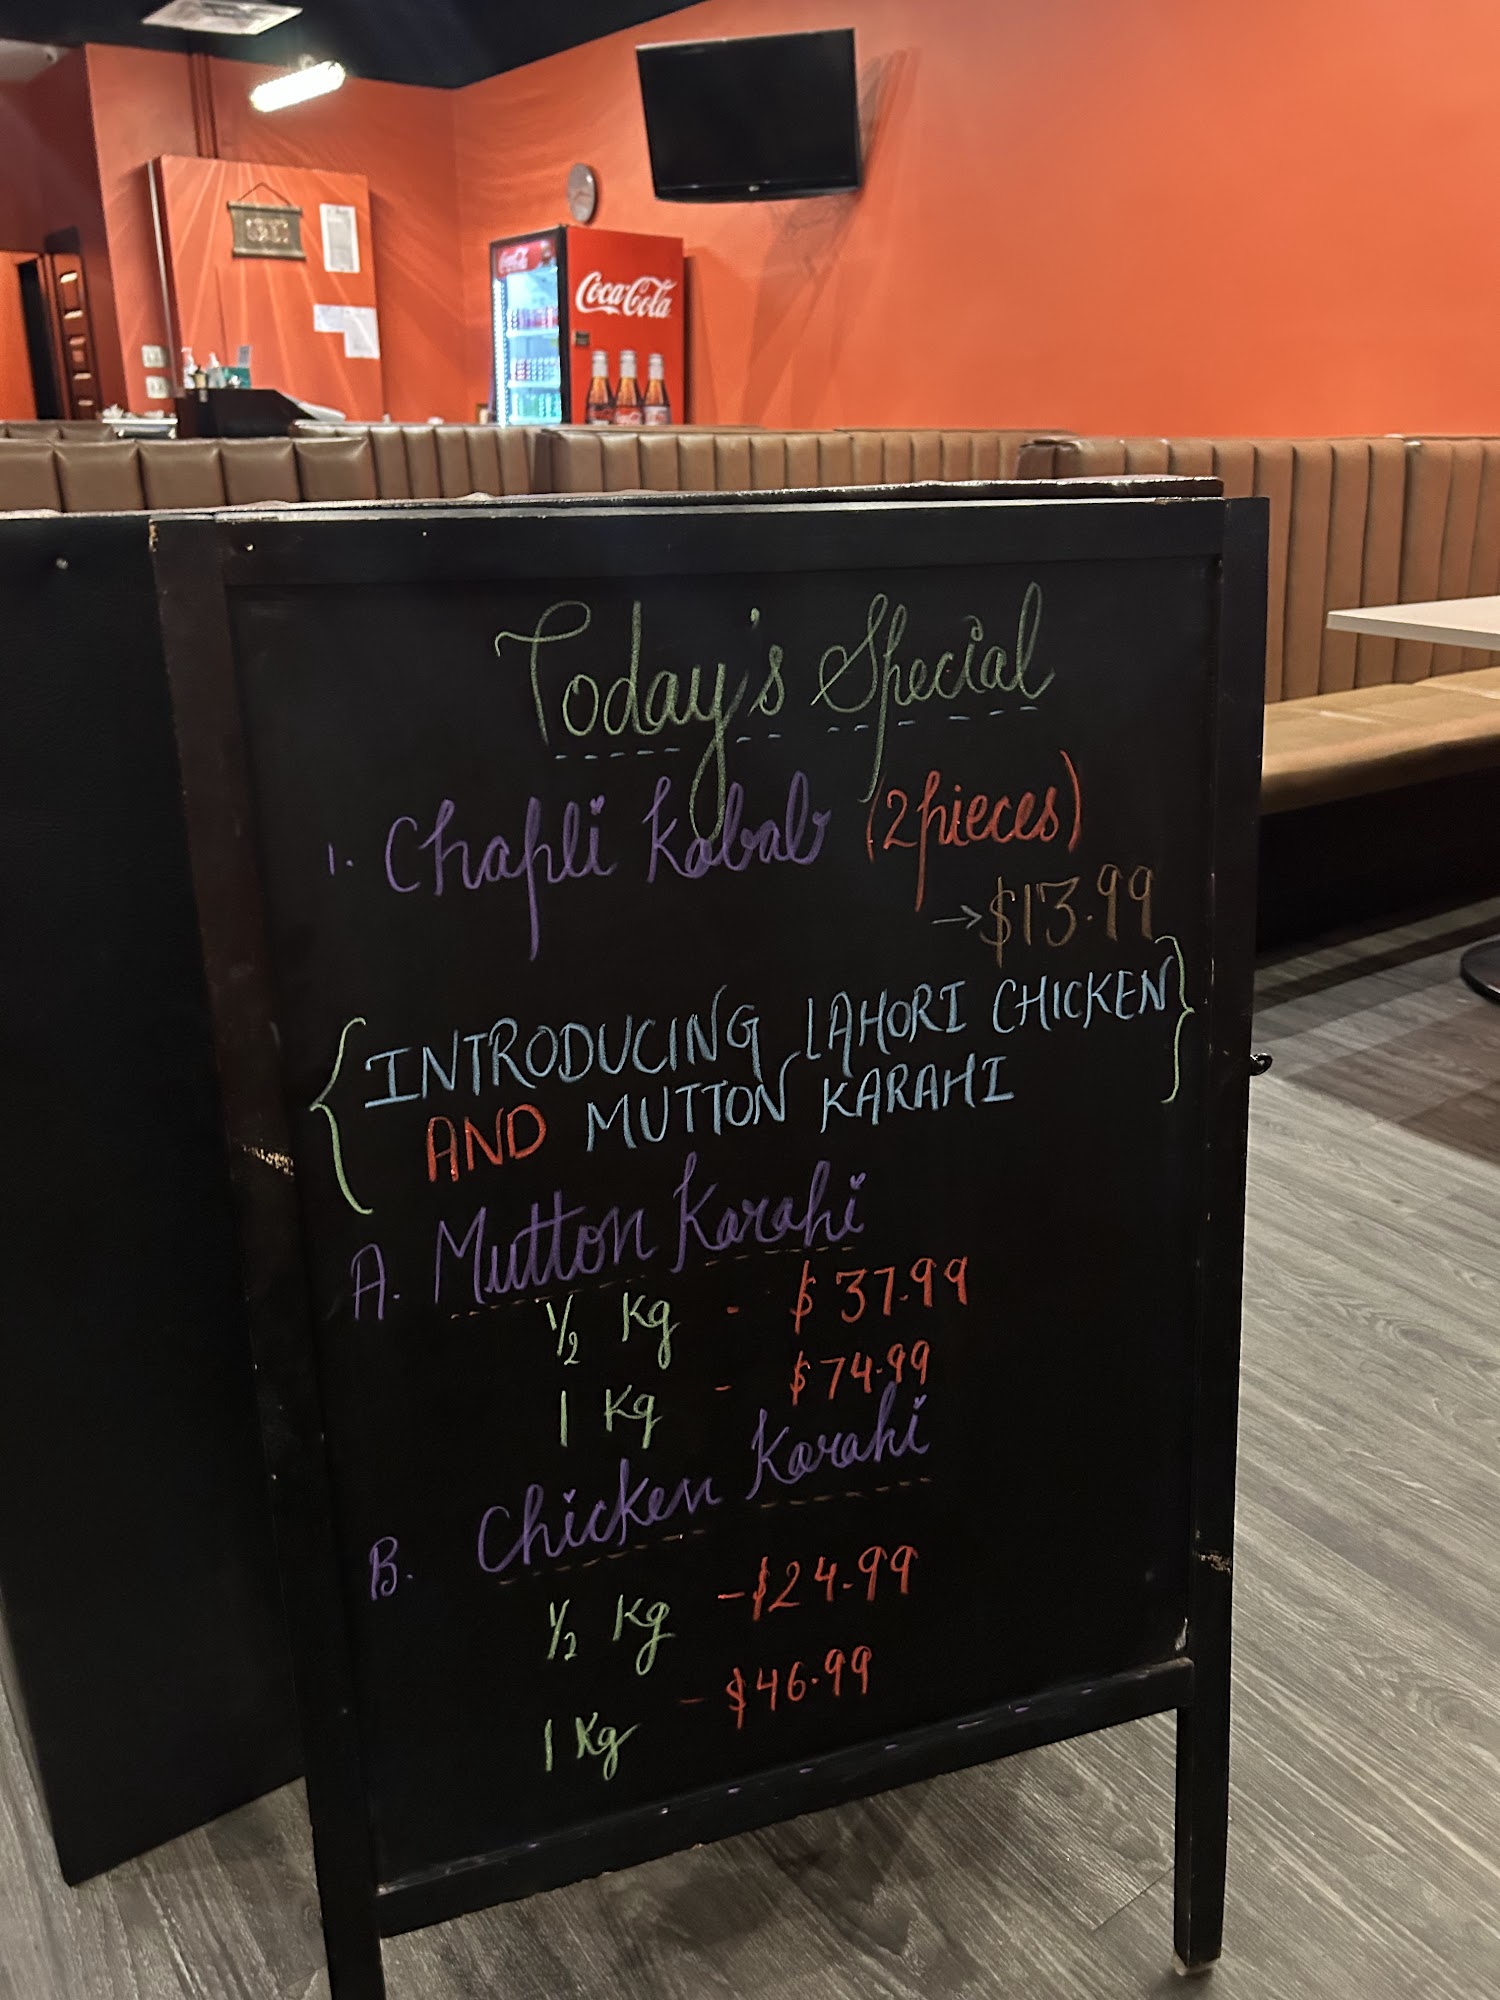 Coca-Cola
Coca-Cola
Today's Special
1. Chapli Kabab (2 pieces)
→ $13.99
{INTRODUCING LAHORI CHICKEN}
AND MUTTON KARAHI
A. Mutton Karahi
1/2 Kg - $37.99
1 Kg - $74.99
B. Chicken Karahi
1/2 Kg - $24.99
1 Kg - $46.99